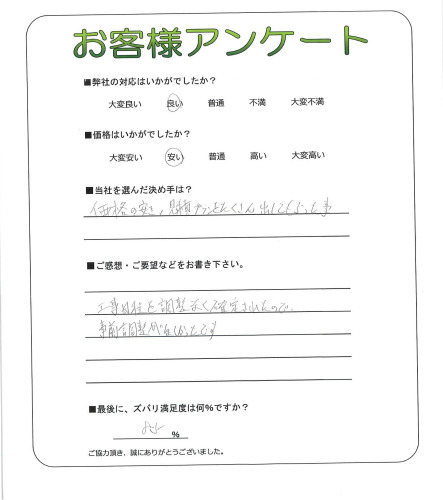 お客様アンケート
■弊社の対応はいかがでしたか？
大変良い 良い 普通 不満 大変不満
■価格はいかがでしたか？
大変安い 安い 普通 高い 大変高い
■当社を選んだ決め手は？
価格の安さ、見積プランをたくさん出してもらった事
■ご感想・ご要望などをお書き下さい。
工事日程を調整なく確定されたので、
事前調整がなかったです
■最後に、ズバリ満足度は何%ですか？
85 %
ご協力頂き、誠にありがとうございました。